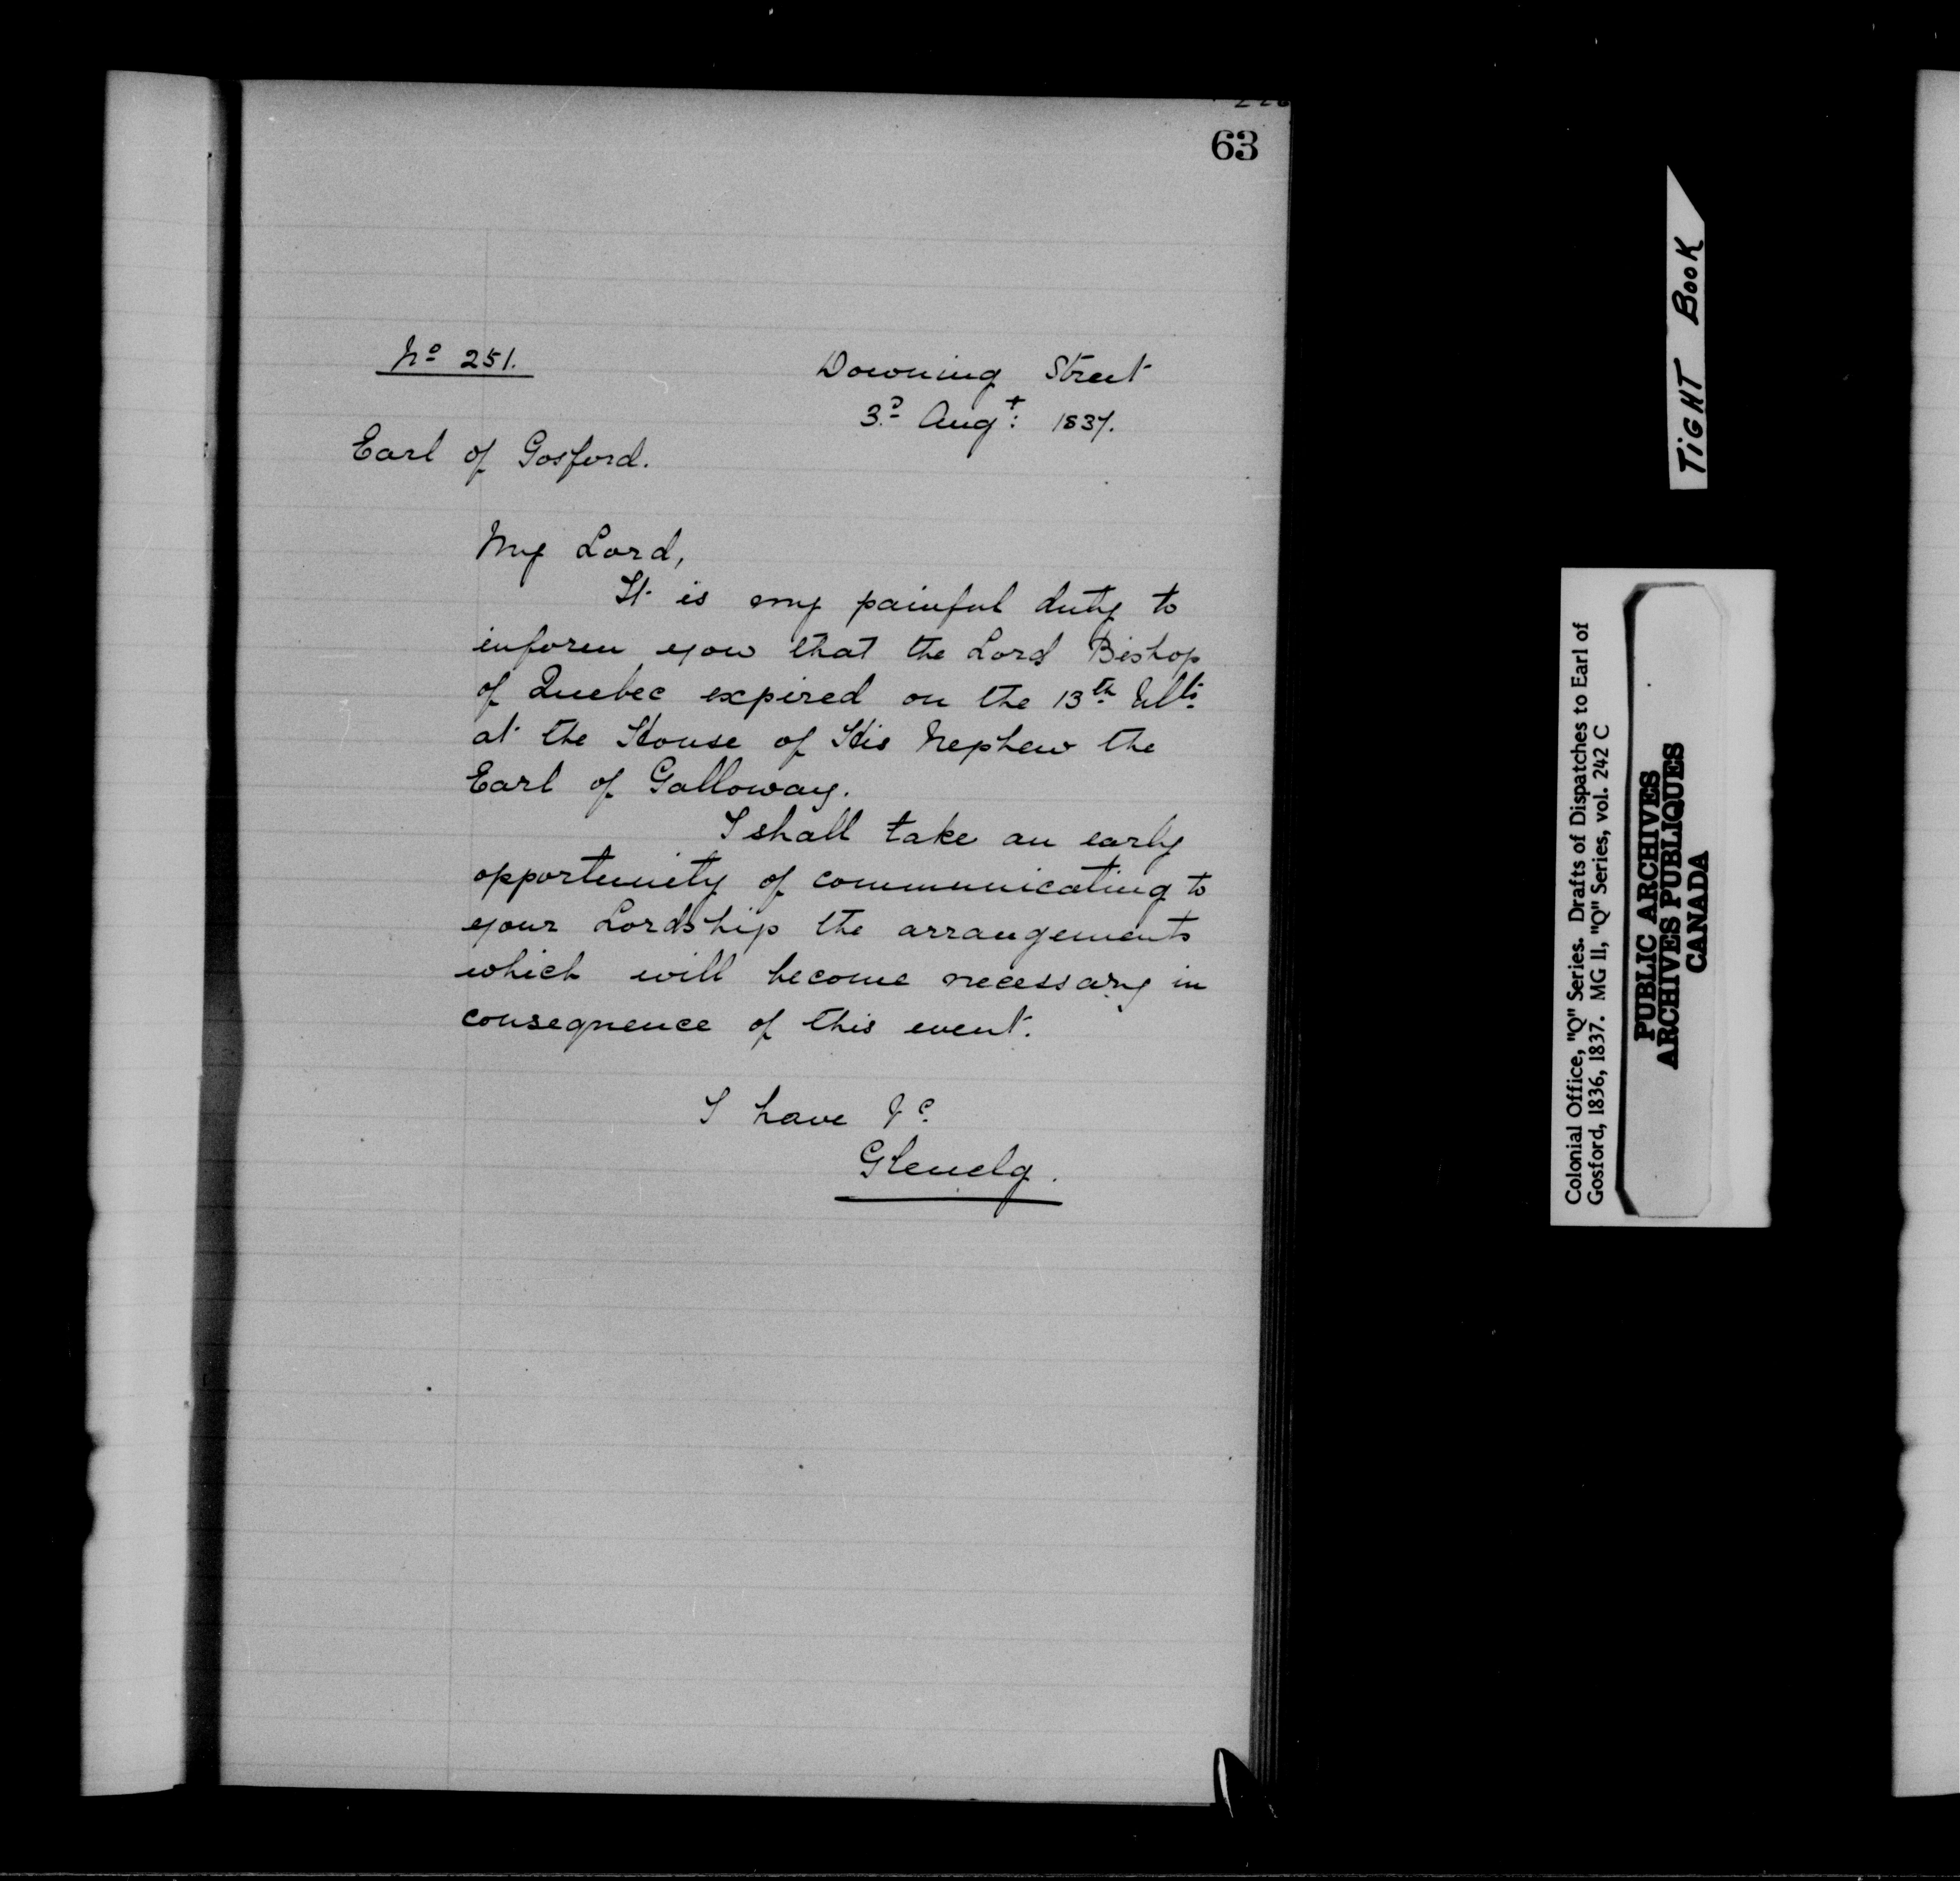 63
No 251.
Downing Street
3d Augt: 1837.
Earl of Gosford.
My Lord,
It is my painful duty to
inform you that the Lord Bishop
of Quebec expired on the 13th Ulto
at the House of His Nephew the
Earl of Galloway.
I shall take an early
opportunity of communicating to
your Lordship the arrangements
which will become necessary in
consequence of this event.
I have &c.
Glenelg.
TIGHT BOOK
Colonial Office, "Q" Series. Drafts of Dispatches to Earl of
Gosford, 1836, 1837. MG 11, "Q" Series, vol. 242 C
PUBLIC ARCHIVES
ARCHIVES PUBLIQUES
CANADA